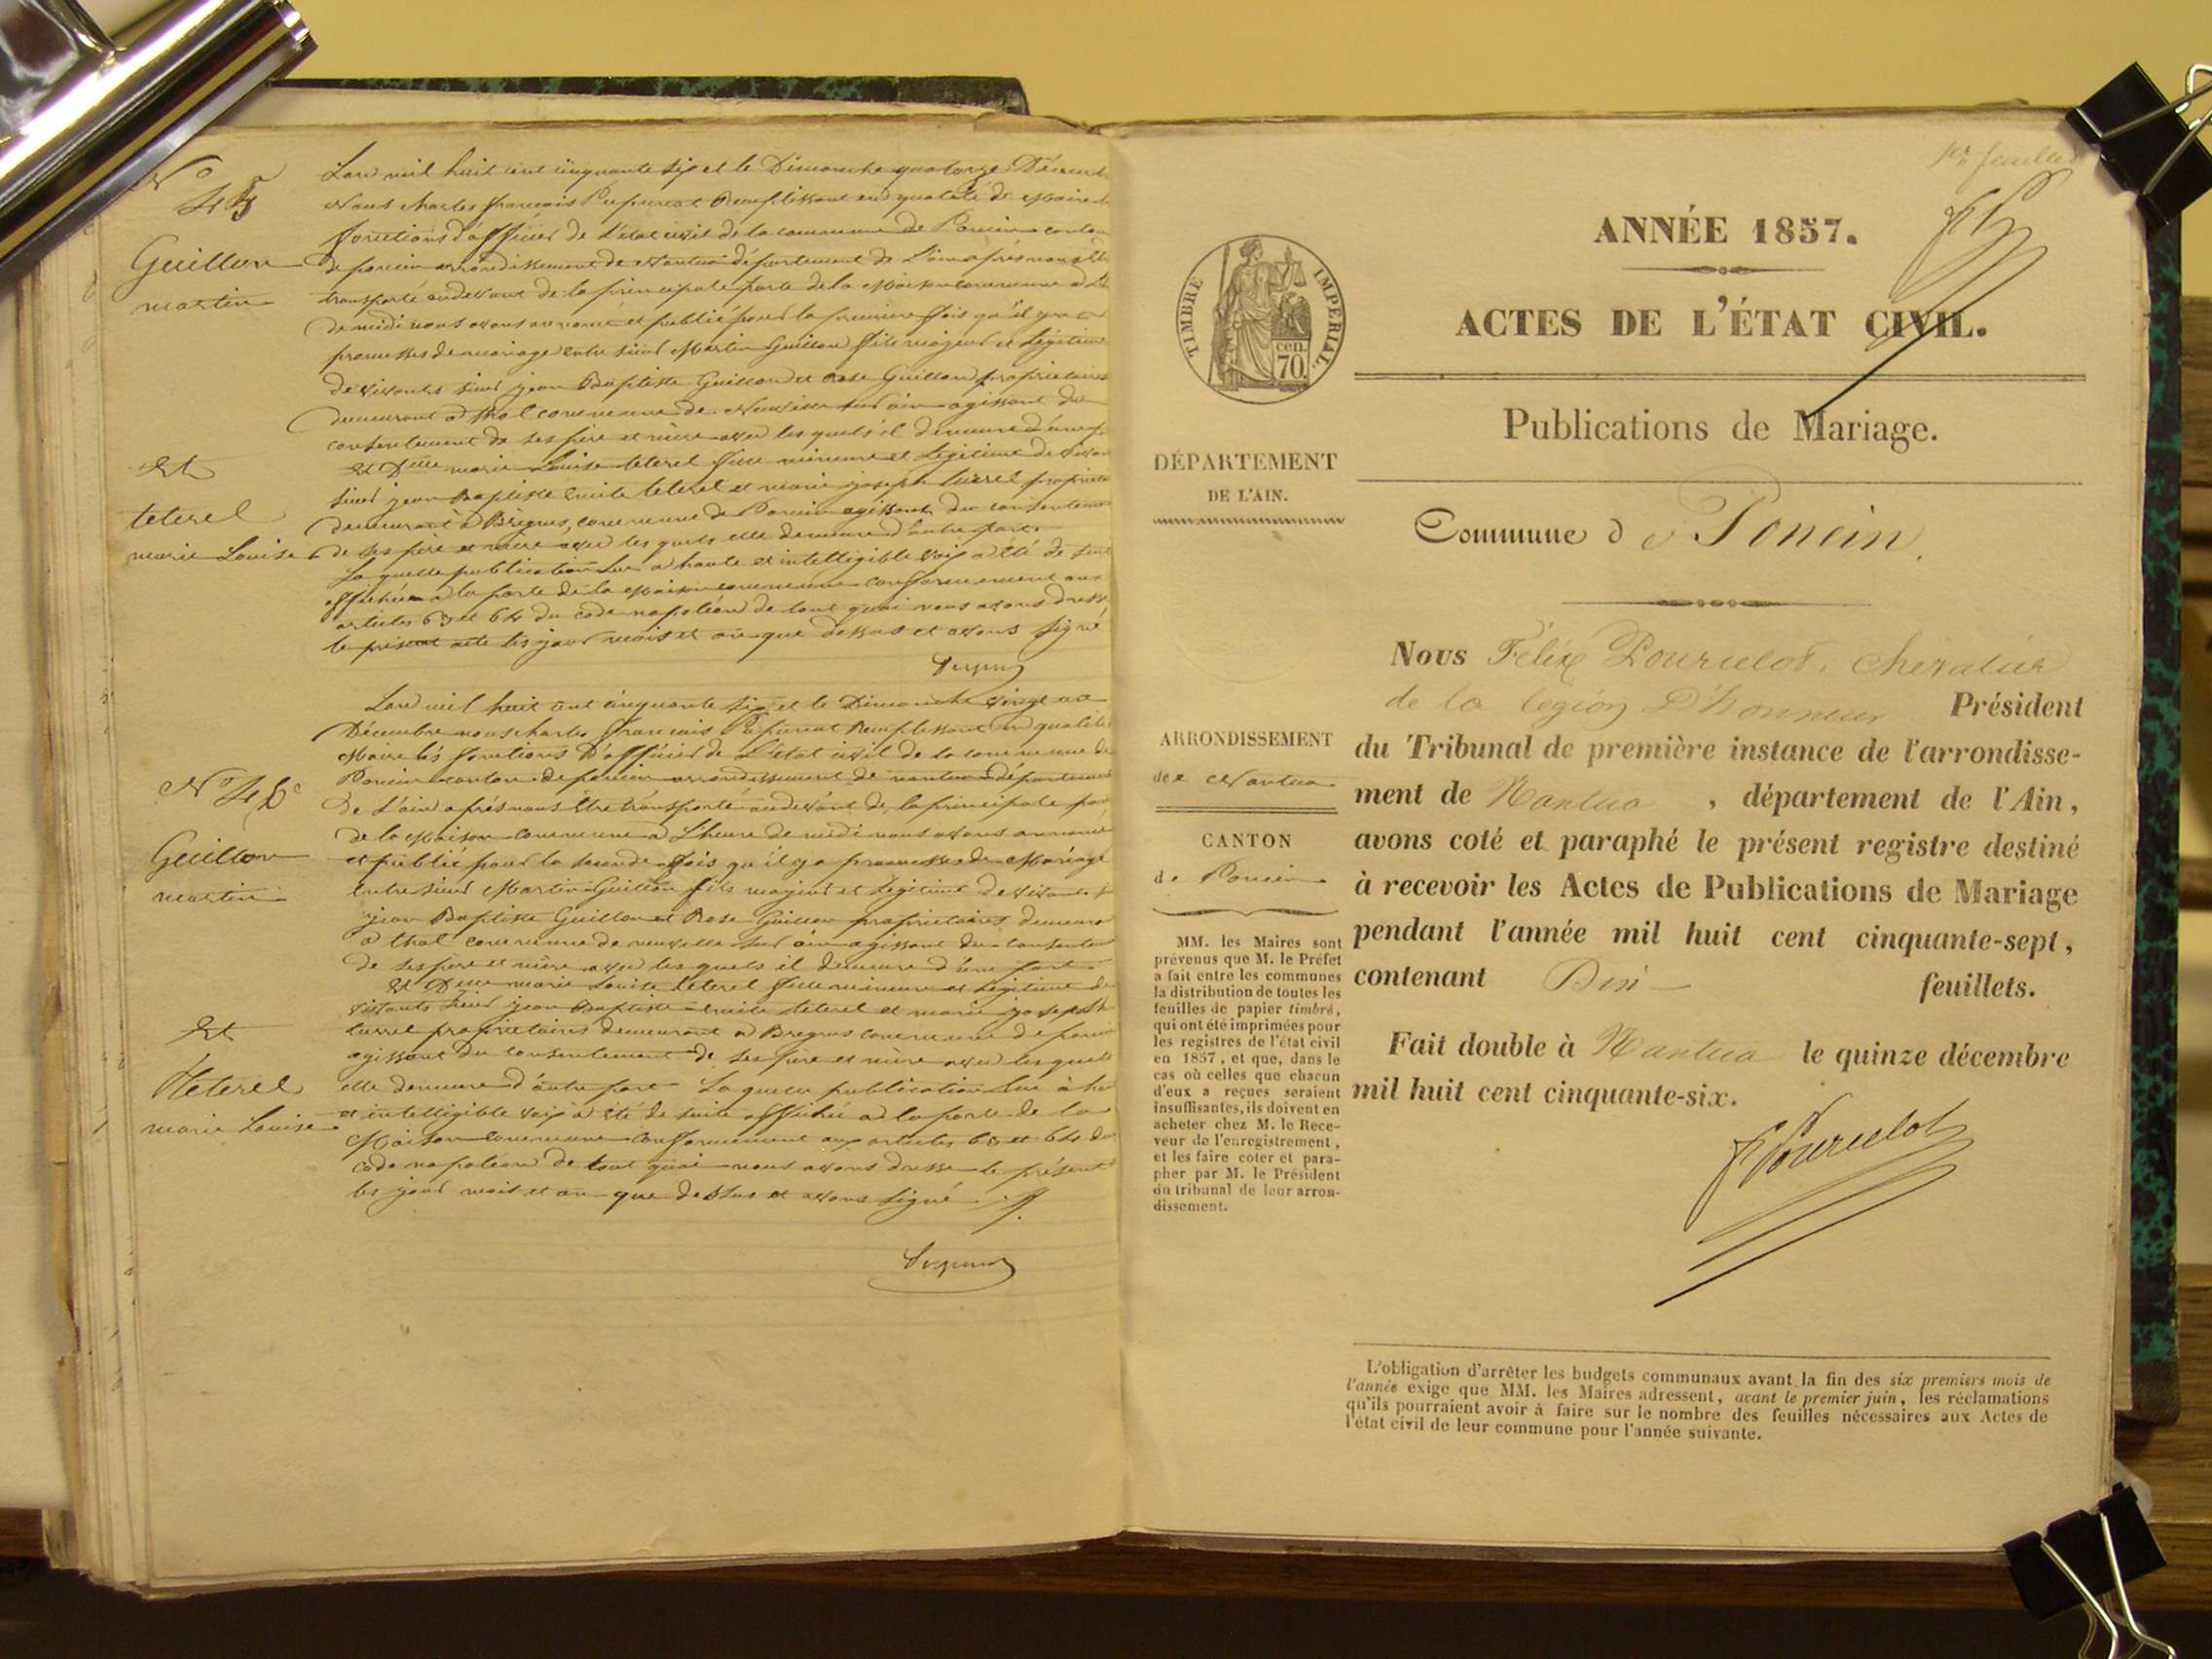 N° 45
Guillon
martin
Et
teterel
marie Louise
L'an mil huit cent cinquante six et le Dimanche quatorze Décemb
Nous charles francois Remplissant en qualité de Maire
fonctions d'officier de l'état civil de la commune de Poncin canton
de poncin arrondissement de Nantua département de L'ain après nous
transporté audevant de la principale porte de la Maison commune
de midi nous avons annoncé et publié pour la première fois qu'il y a
promesses de mariage entre sieur Martin Guillon fils majeur et légitime
de vivants sieur jean Baptiste Guillon et Rose Guillon propriétaires
demeurant à thol commune de Neuville sur ain agissant du
consentement de ses père et mère avec lesquels il demeure d'une
et Dlle marie Louise teterel fille mineure et légitime de
sieur jean Baptiste teterel et marie joseph propriet
demeurant à Brégnes, commune de Poncin agissant du consenteme
de ses père et mère avec lesquels elle demeure d'autre part
La quelle publication lue a haute et intelligible voix a été de suit
affichée a la porte de la Maison commune conformement aux
articles 63 et 64 du code napoléon de tout quoi nous avons dressé
le présent acte les jour mois et an que dessus et avons signé
N° 46
Guillon
martin
Et
teterel
marie Louise
L'an mil huit cent cinquante six et le Dimanche vingt un
Décembre nous charles francois Remplissant en qualité
Maire les fonctions d'officier de L'état civil de la commune de
Poncin canton de poncin arrondissement de nantua département
de L'ain après nous être transporté audevant de la principale por
de la Maison commune a L'heure de midi nous avons annoncé
et publié pour la seconde fois qu'il y a promesses de Mariage
entre sieur Martin Guillon fils majeur et légitime de vivants
jean Baptiste Guillon et Rose Guillon propriétaires demeura
a thol commune de neuville sur ain agissant du consentem
de ses père et mère avec lesquels il demeure d'une part
et Dlle marie Louise teterel fille mineure et légitime de
vivants sieur jean Baptiste teterel et marie joseph
propriétaires demeurant a Brégnes commune de poncin
agissant du consentement de ses père et mère avec lesquels
elle demeure d'autre part La quelle publication lue à ha
et intelligible voix a été de suite affichée a la porte de la
Maison commune conformement aux articles 63 et 64 du
code napoléon de tout quoi nous avons dressé le présent
les jour mois et an que dessus et avons signé
1er feuillet
ANNÉE 1857.
ACTES DE L'ÉTAT CIVIL.
Publications de Mariage.
Commune de Poncin.
TIMBRE IMPERIAL.
cen.
70.
DÉPARTEMENT
DE L'AIN.
ARRONDISSEMENT
de Nantua
CANTON
de Poncin
MM. les Maires sont
prévenus que M. le Préfet
a fait entre les communes
la distribution de toutes les
feuilles de papier timbré,
qui ont été imprimées pour
les registres de l'état civil
en 1857, et que, dans le
cas où celles que chacun
d'eux a reçues seraient
insuffisantes, ils doivent en
acheter chez M. le Rece-
veur de l'enregistrement,
et les faire coter et para-
pher par M. le Président
du tribunal de leur arron-
dissement.
Nous Félix Pourcelot, chevalier
de la légion D'honneur Président
du Tribunal de première instance de l'arrondisse-
ment de Nantua, département de l'Ain,
avons coté et paraphé le présent registre destiné
à recevoir les Actes de Publications de Mariage
pendant l'année mil huit cent cinquante-sept,
contenant feuillets.
Fait double à Nantua le quinze décembre
mil huit cent cinquante-six.
F Pourcelot
L'obligation d'arrêter les budgets communaux avant la fin des six premiers mois de
l'année exige que MM. les Maires adressent, avant le premier juin, les réclamations
qu'ils pourraient avoir à faire sur le nombre des feuilles nécessaires aux Actes de
l'état civil de leur commune pour l'année suivante.